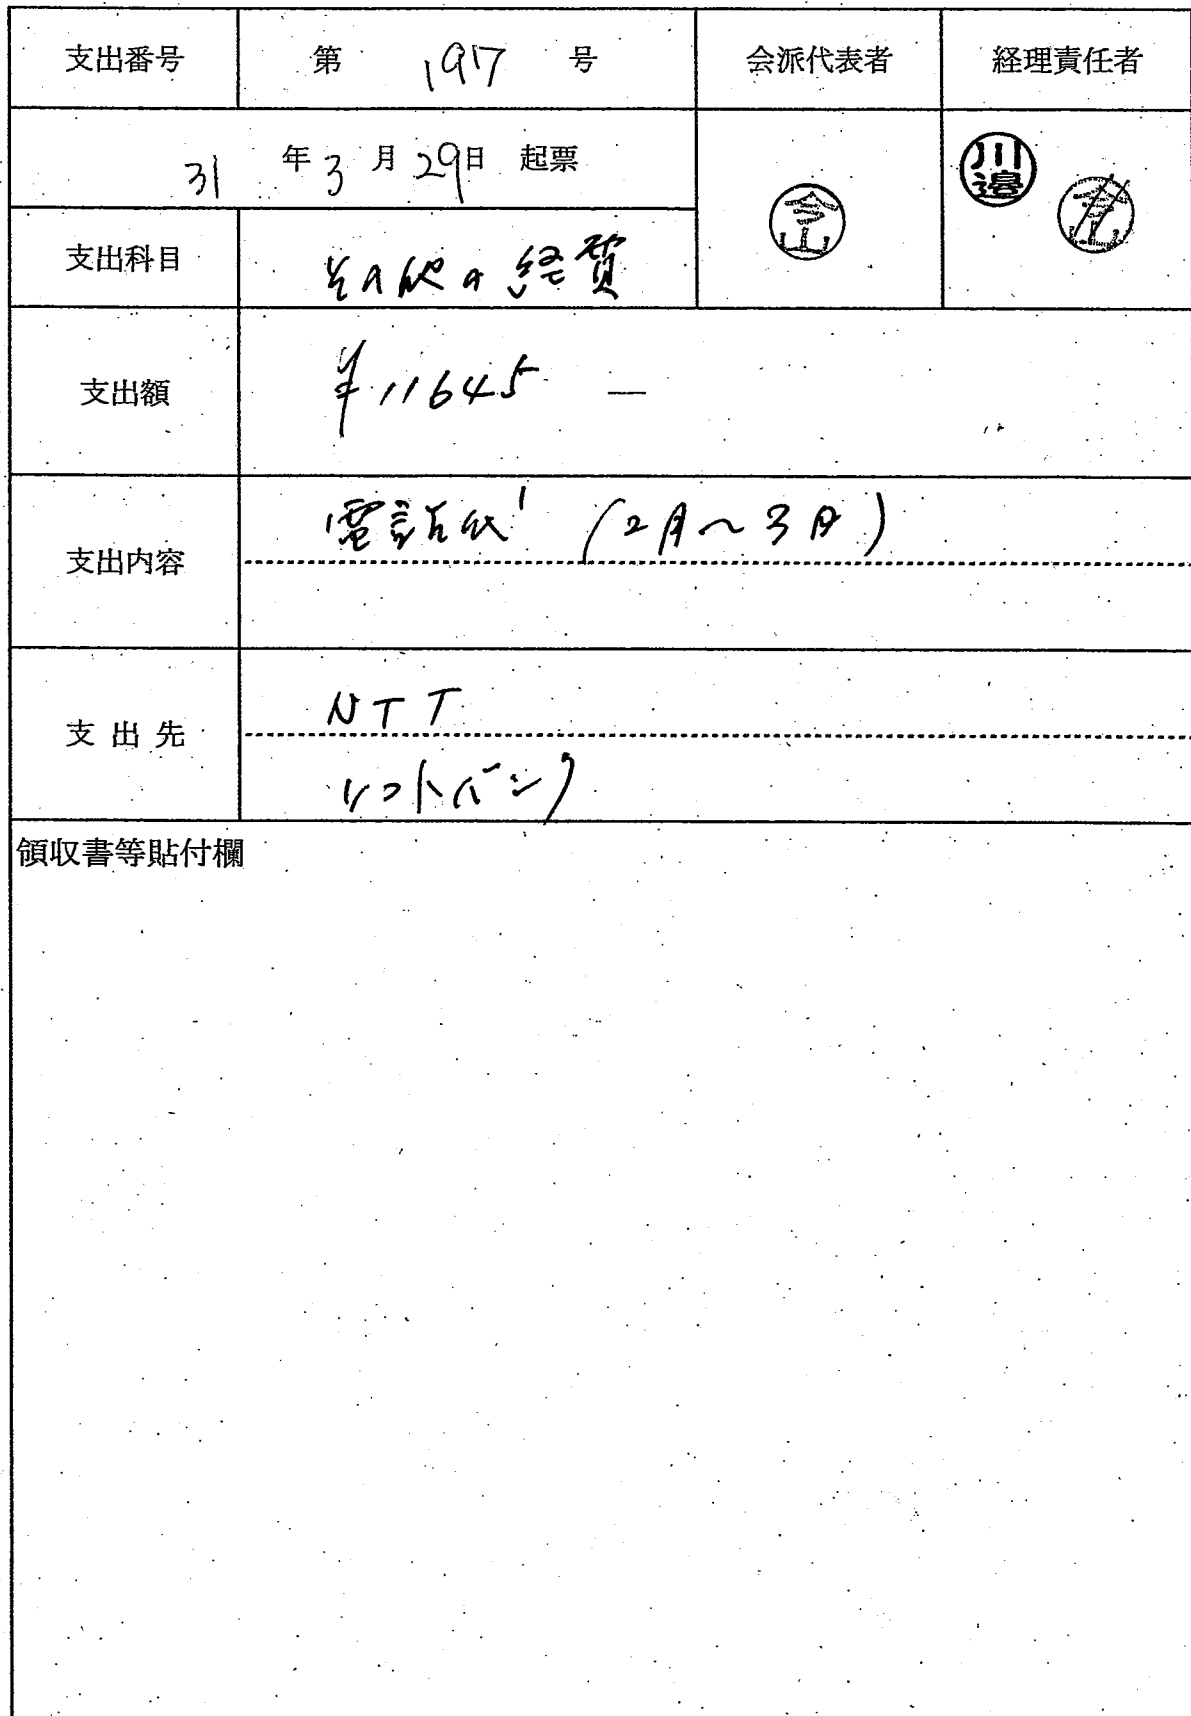 支出番号 第 197 号 会派代表者 経理責任者
31 年 3 月 29日 起票
川邉
今山
支出科目 その他の経費
支出額 ¥11645 —
支出内容 電話代 (2月～3月)
支出先 NTT
ソフトバンク
領収書等貼付欄